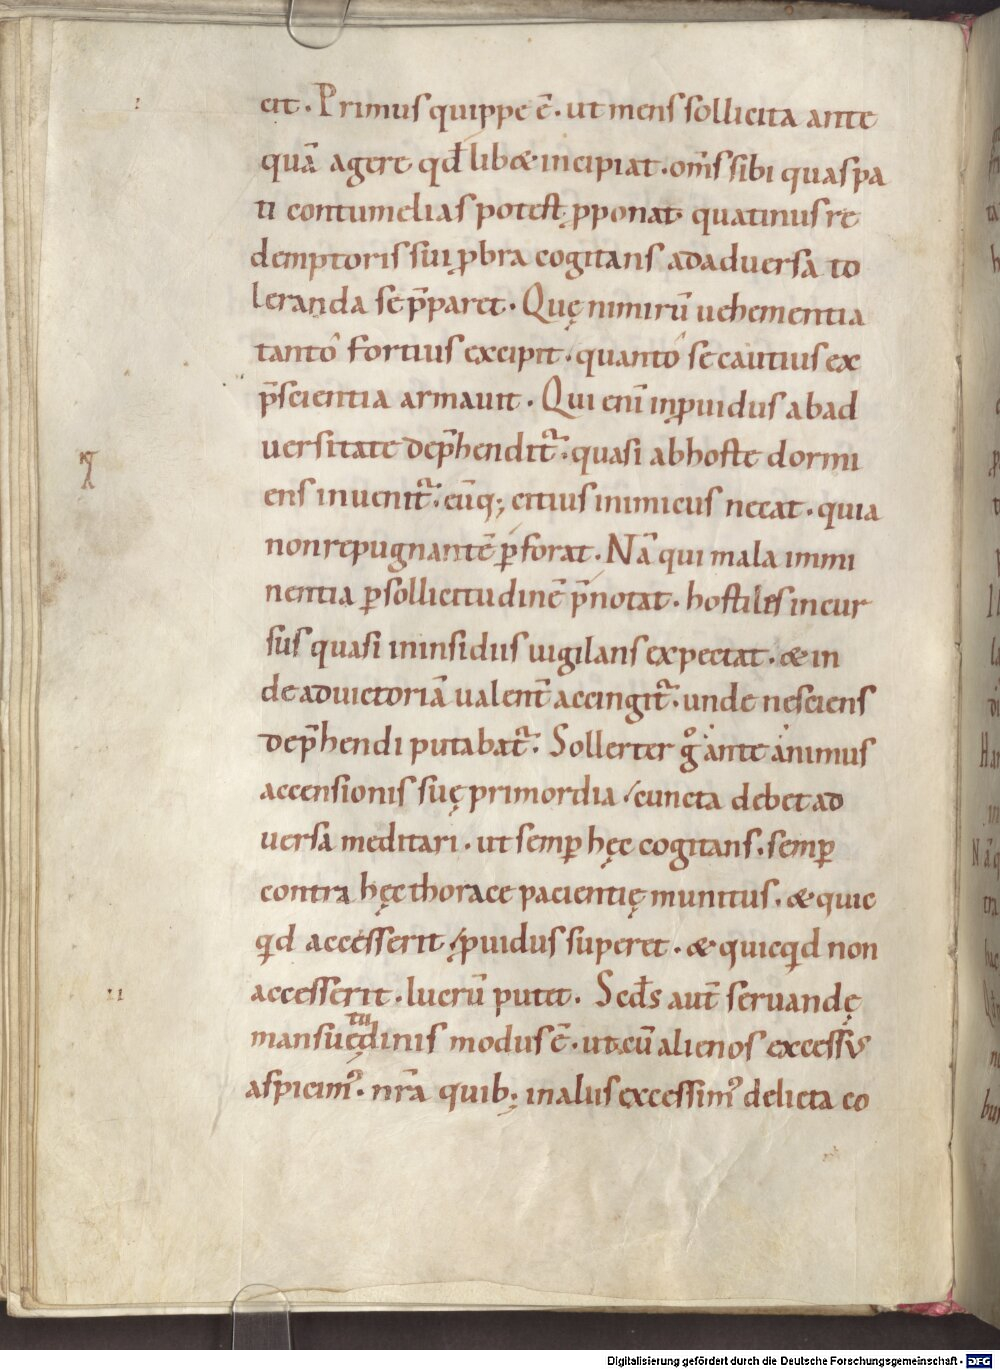 I
cit. Primus quippe ē. ut mens sollicita ante
quā agere qđlib& incipiat. om̄s sibi quas pa
ti contumelias potest ꝓponat quatinus re
demptoris sui ꝓbra cogitans ad aduersa to
leranda se p̄paret. Quę nimirū uehementia
tanto fortius excipit. quanto se cautius ex
p̄scientia armauit. Qui enī inꝓuidus ab ad
uersitate dep̄hendit᷑. quasi ab hoste dormi
ens inuenit᷑. eūq; citius inimicus necat. quia
non repugnantē ꝑforat. Nā qui mala immi
nentia ꝑ sollicitudinē p̄notat. hostiles incur
sus quasi in insidiis uigilans expectat. & in
de ad uictoriā ualent̄ accingit᷑. unde nesciens
dep̄hendi putabat᷑. Sollerter gͦ ante animus
accensionis suę primordia / cuncta debet ad
uersa meditari. ut semꝑ hęc cogitans. semꝑ
contra hęc thorace pacientię munitus. & quic
qd accesserit ꝓuidus superet. & quicqd non
II
accesserit. lucrū putet. Scđs aut̄ seruandę
tu
mansuędinis modus ē. ut cū alienos excessus
aspicimꝰ. nr̄a quib; in aliis excessimꝰ delicta co
Digitalisierung gefördert durch die Deutsche Forschungsgemeinschaft - DFG